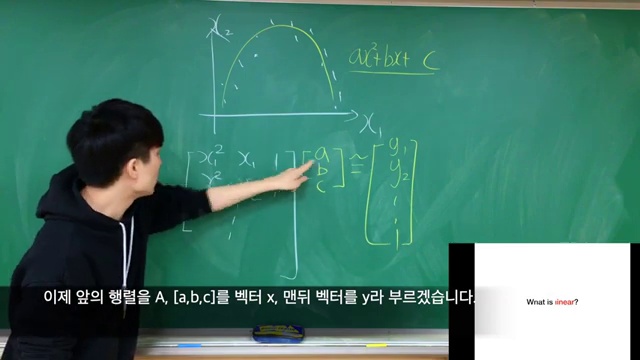 x₂
ax²+bx+ c
x₁
x₁² x₁ 1 a ≃ y₁
x² b y₂
c
이제 앞의 행렬을 A, [a,b,c]를 벡터 x, 맨뒤 벡터를 y라 부르겠습니다.
What is linear?